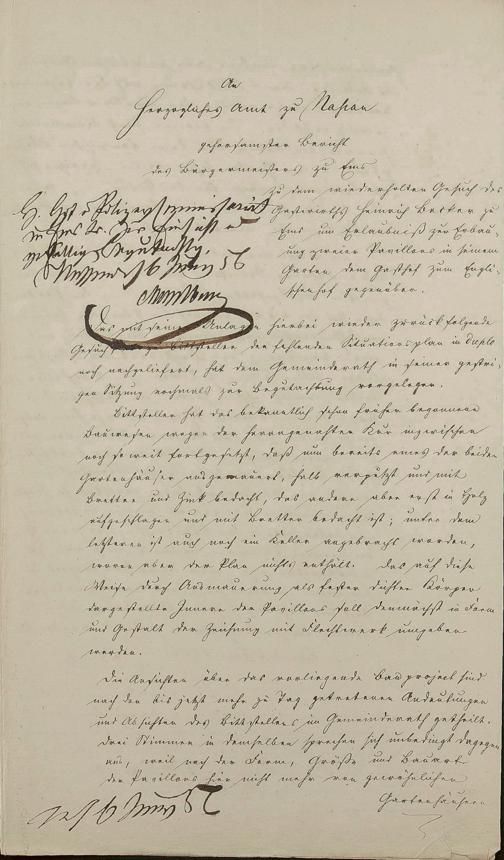 An
Herzogliches Amt zu Nassau
gehorsamster Bericht
des Bürgermeisters zu Ems
zu dem wiederholten Gesuch des
Gastwirths Heinrich Becker zu
Ems um Erlaubniß zur Erbau-
ung zweier Pavillons in seinem
Garten dem Gasthof zum Engli-
schenhof gegenüber.
H. Polizeicommissariat
in Ems
Nassau 6 Juni 56
Das mit seinen Anlagen hierbei wieder zurück folgende
Gesuch Bittsteller den fehlenden Situationsplan in duplo
noch nachgeliefert, hat dem Gemeinderath in seiner gestri-
gen Sitzung nochmals zur Begutachtung vorgelegen.
Bittsteller hat das bekanntlich schon früher begonnene
Bauwesen wegen der herangenahten Kur inzwischen
noch so weit fortgesetzt, daß nun bereits eines der beiden
Gartenhäuser ausgemauert, halb verputzt und mit
Bretter und Zink bedacht, das andere aber erst in Holz
aufgeschlagen und mit Bretter bedacht ist; unter dem
letzteren ist auch noch ein Keller angebracht worden,
wovon aber der Plan nichts enthält. Das auf diese
Weise durch Ausmauerung als fester dichter Körper
dargestellte Innere der Pavillons soll demnächst in Form
und Gestalt der Zeichnung mit Flechtwerk umgeben
werden.
Die Ansichten über das vorliegende Bauproject sind
nach den bis jetzt mehr zu Tag getretenen Andeutungen
und Absichten des Bittstellers im Gemeinderath getheilt.
Drei Stimmen in demselben sprechen sich unbedingt dagegen
aus, weil nach der Form, Größe und Bauart
der Pavillons hier nicht mehr von gewöhnlichen
Gartenhäusern
6 Juni 56